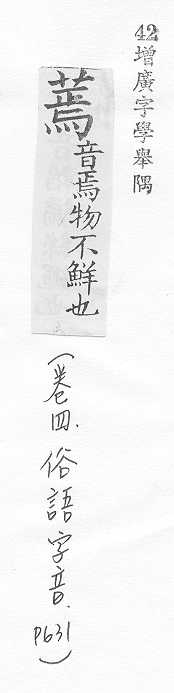 42增廣字學舉隅
蔫音焉物不鮮也
(卷四.俗語字音.P631)